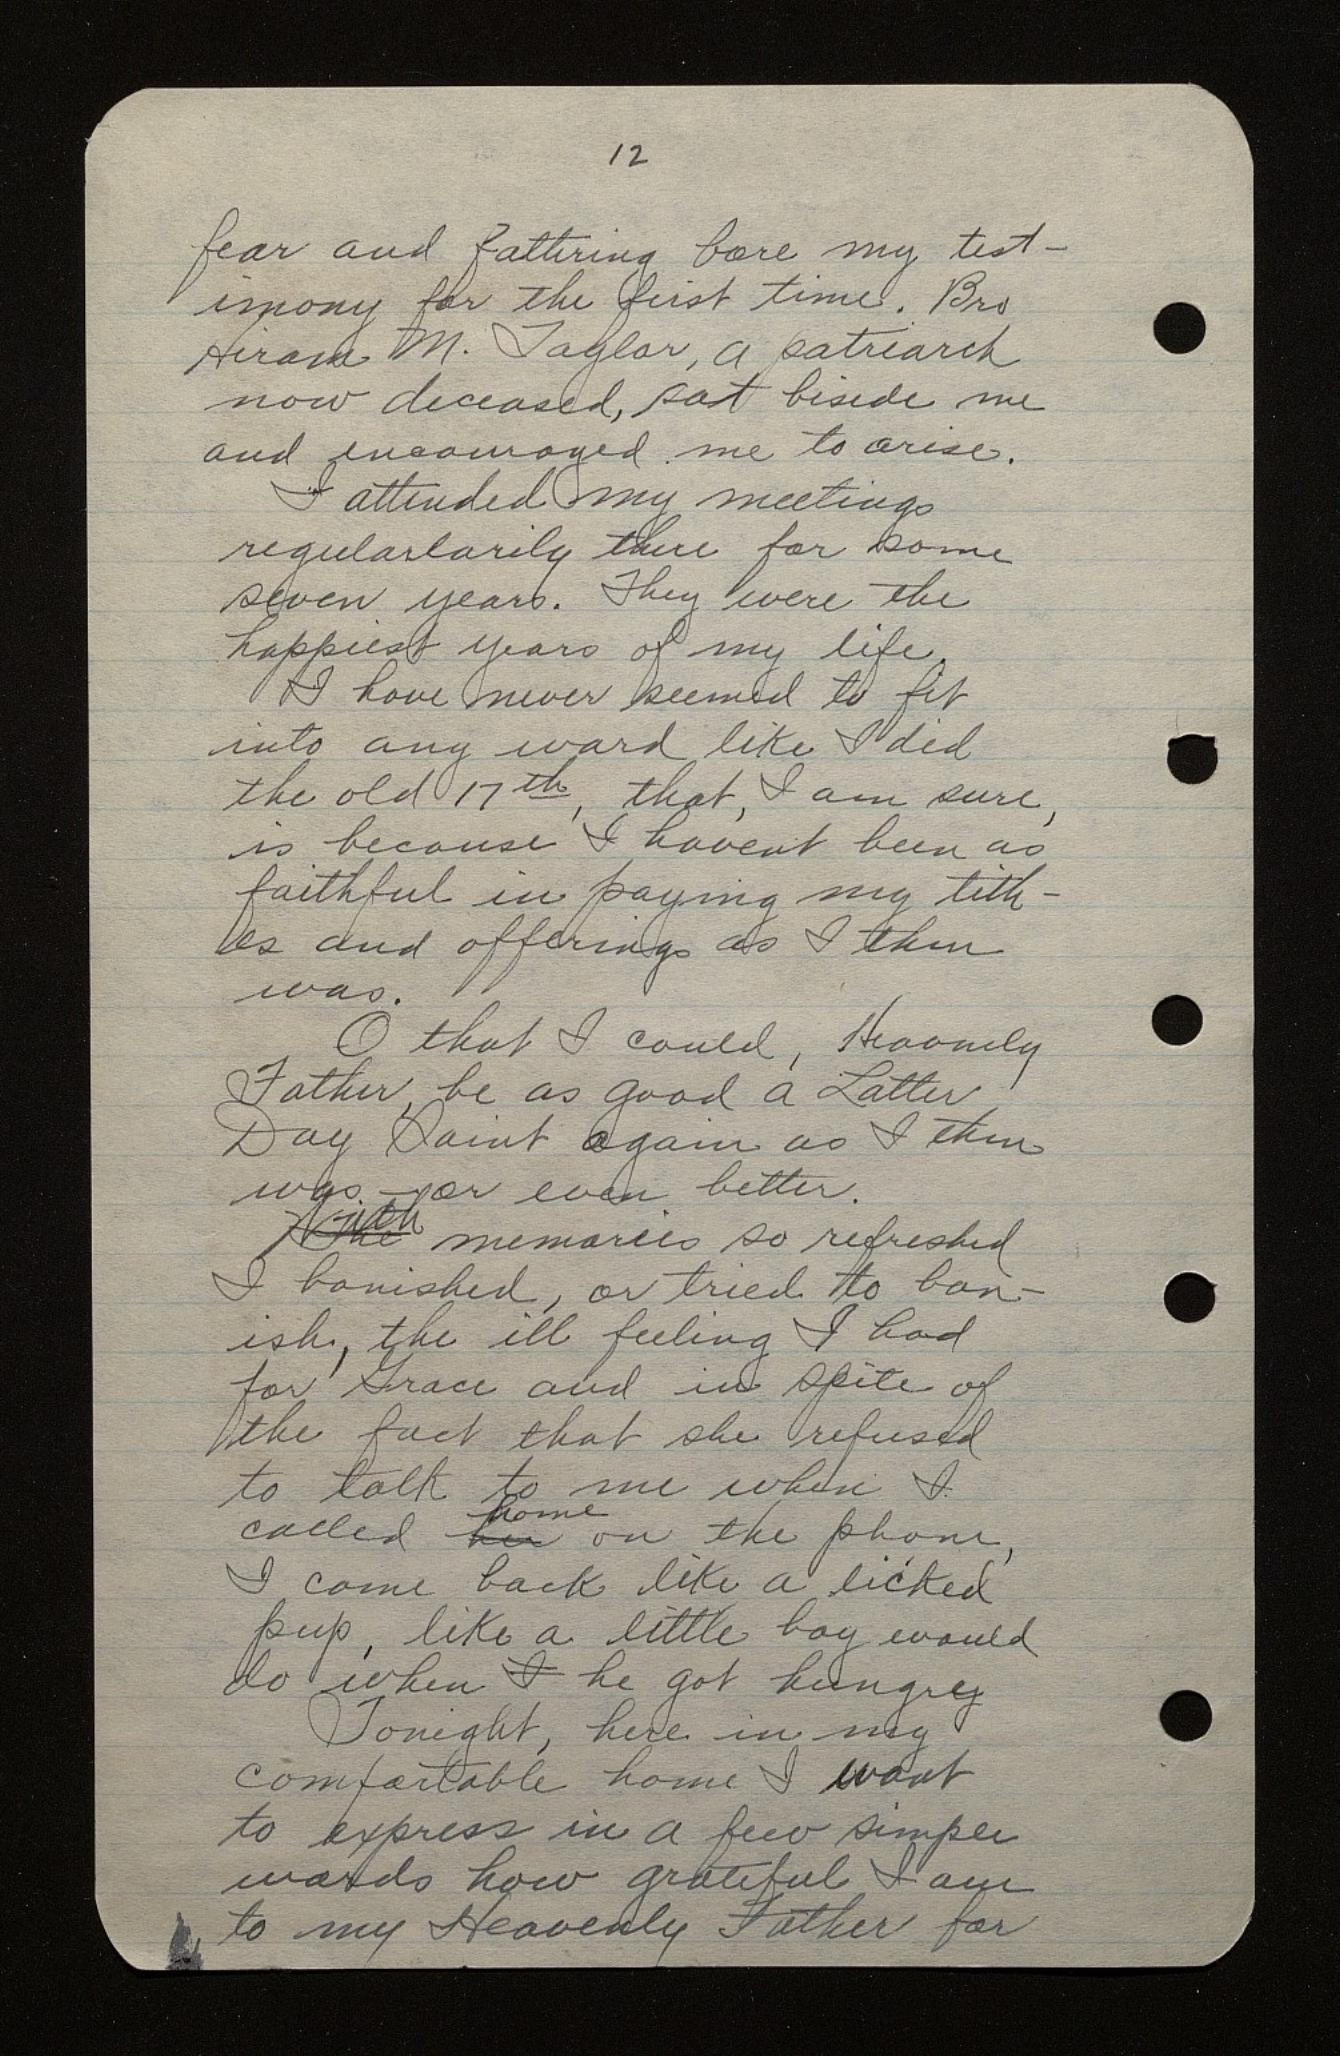 12
fear and faltiring bore my test-
imony for the first time. Bro
Hiram M. Taylor, a patriarch
now deceased, sat biside me
and encouraged me to arise.
I attended my meetings
regularlarily there for some
seven years. They were the
happiest years of my life.
I have never seemed to fit
into any ward like I did
the old 17th, that, I am sure,
is because I havent been as
faithful in paying my tith-
es and offerings as I then
was.
O that I could, Heavenly
Father, be as good a Latter
Day Saint again as I then
was - or even better.
With
The memories so refreshed
I banished, or tried to ban-
ish, the ill feeling I had
for Grace and in spite of
the fact that she refused
to talk to me when I
home
called her on the phone,
I come back like a licked
pup, like a little boy would
do when I he got hungrey
Tonight, here in my
comfortable home I want
to express in a few simple
words how grateful I am
to my Heavenly Father for